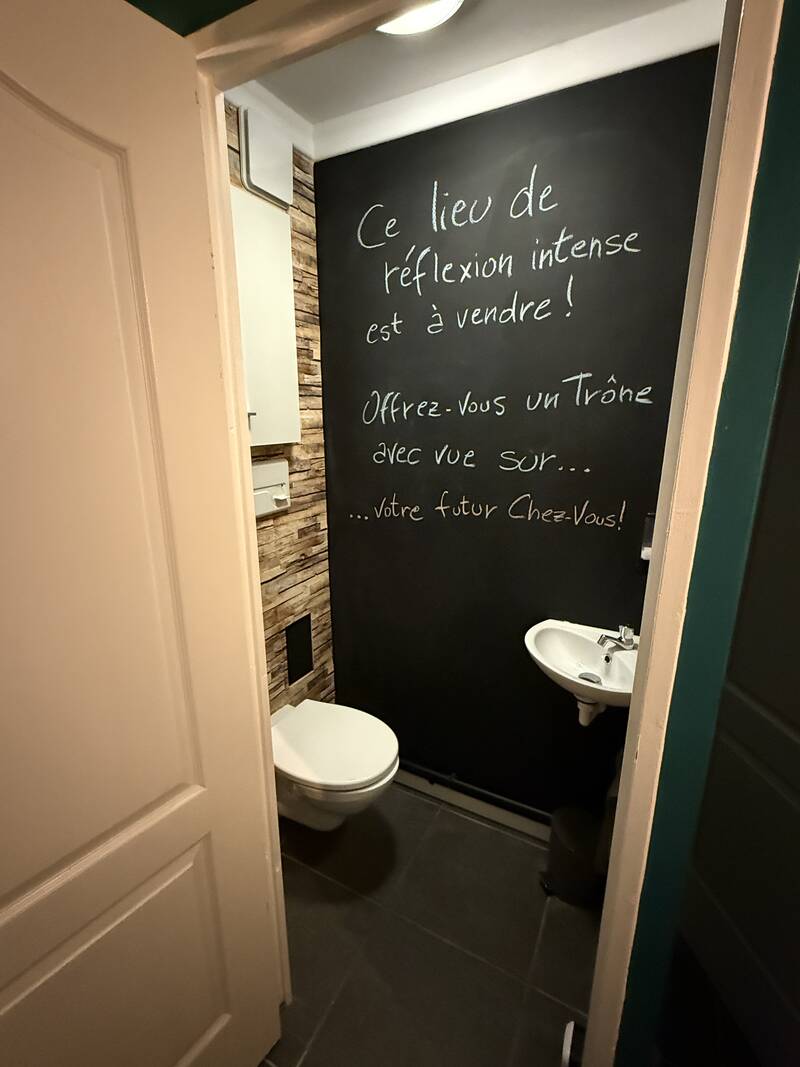 Ce lieu de
réflexion intense
est à vendre !
Offrez-vous un Trône
avec vue sur...
...votre futur Chez-Vous!